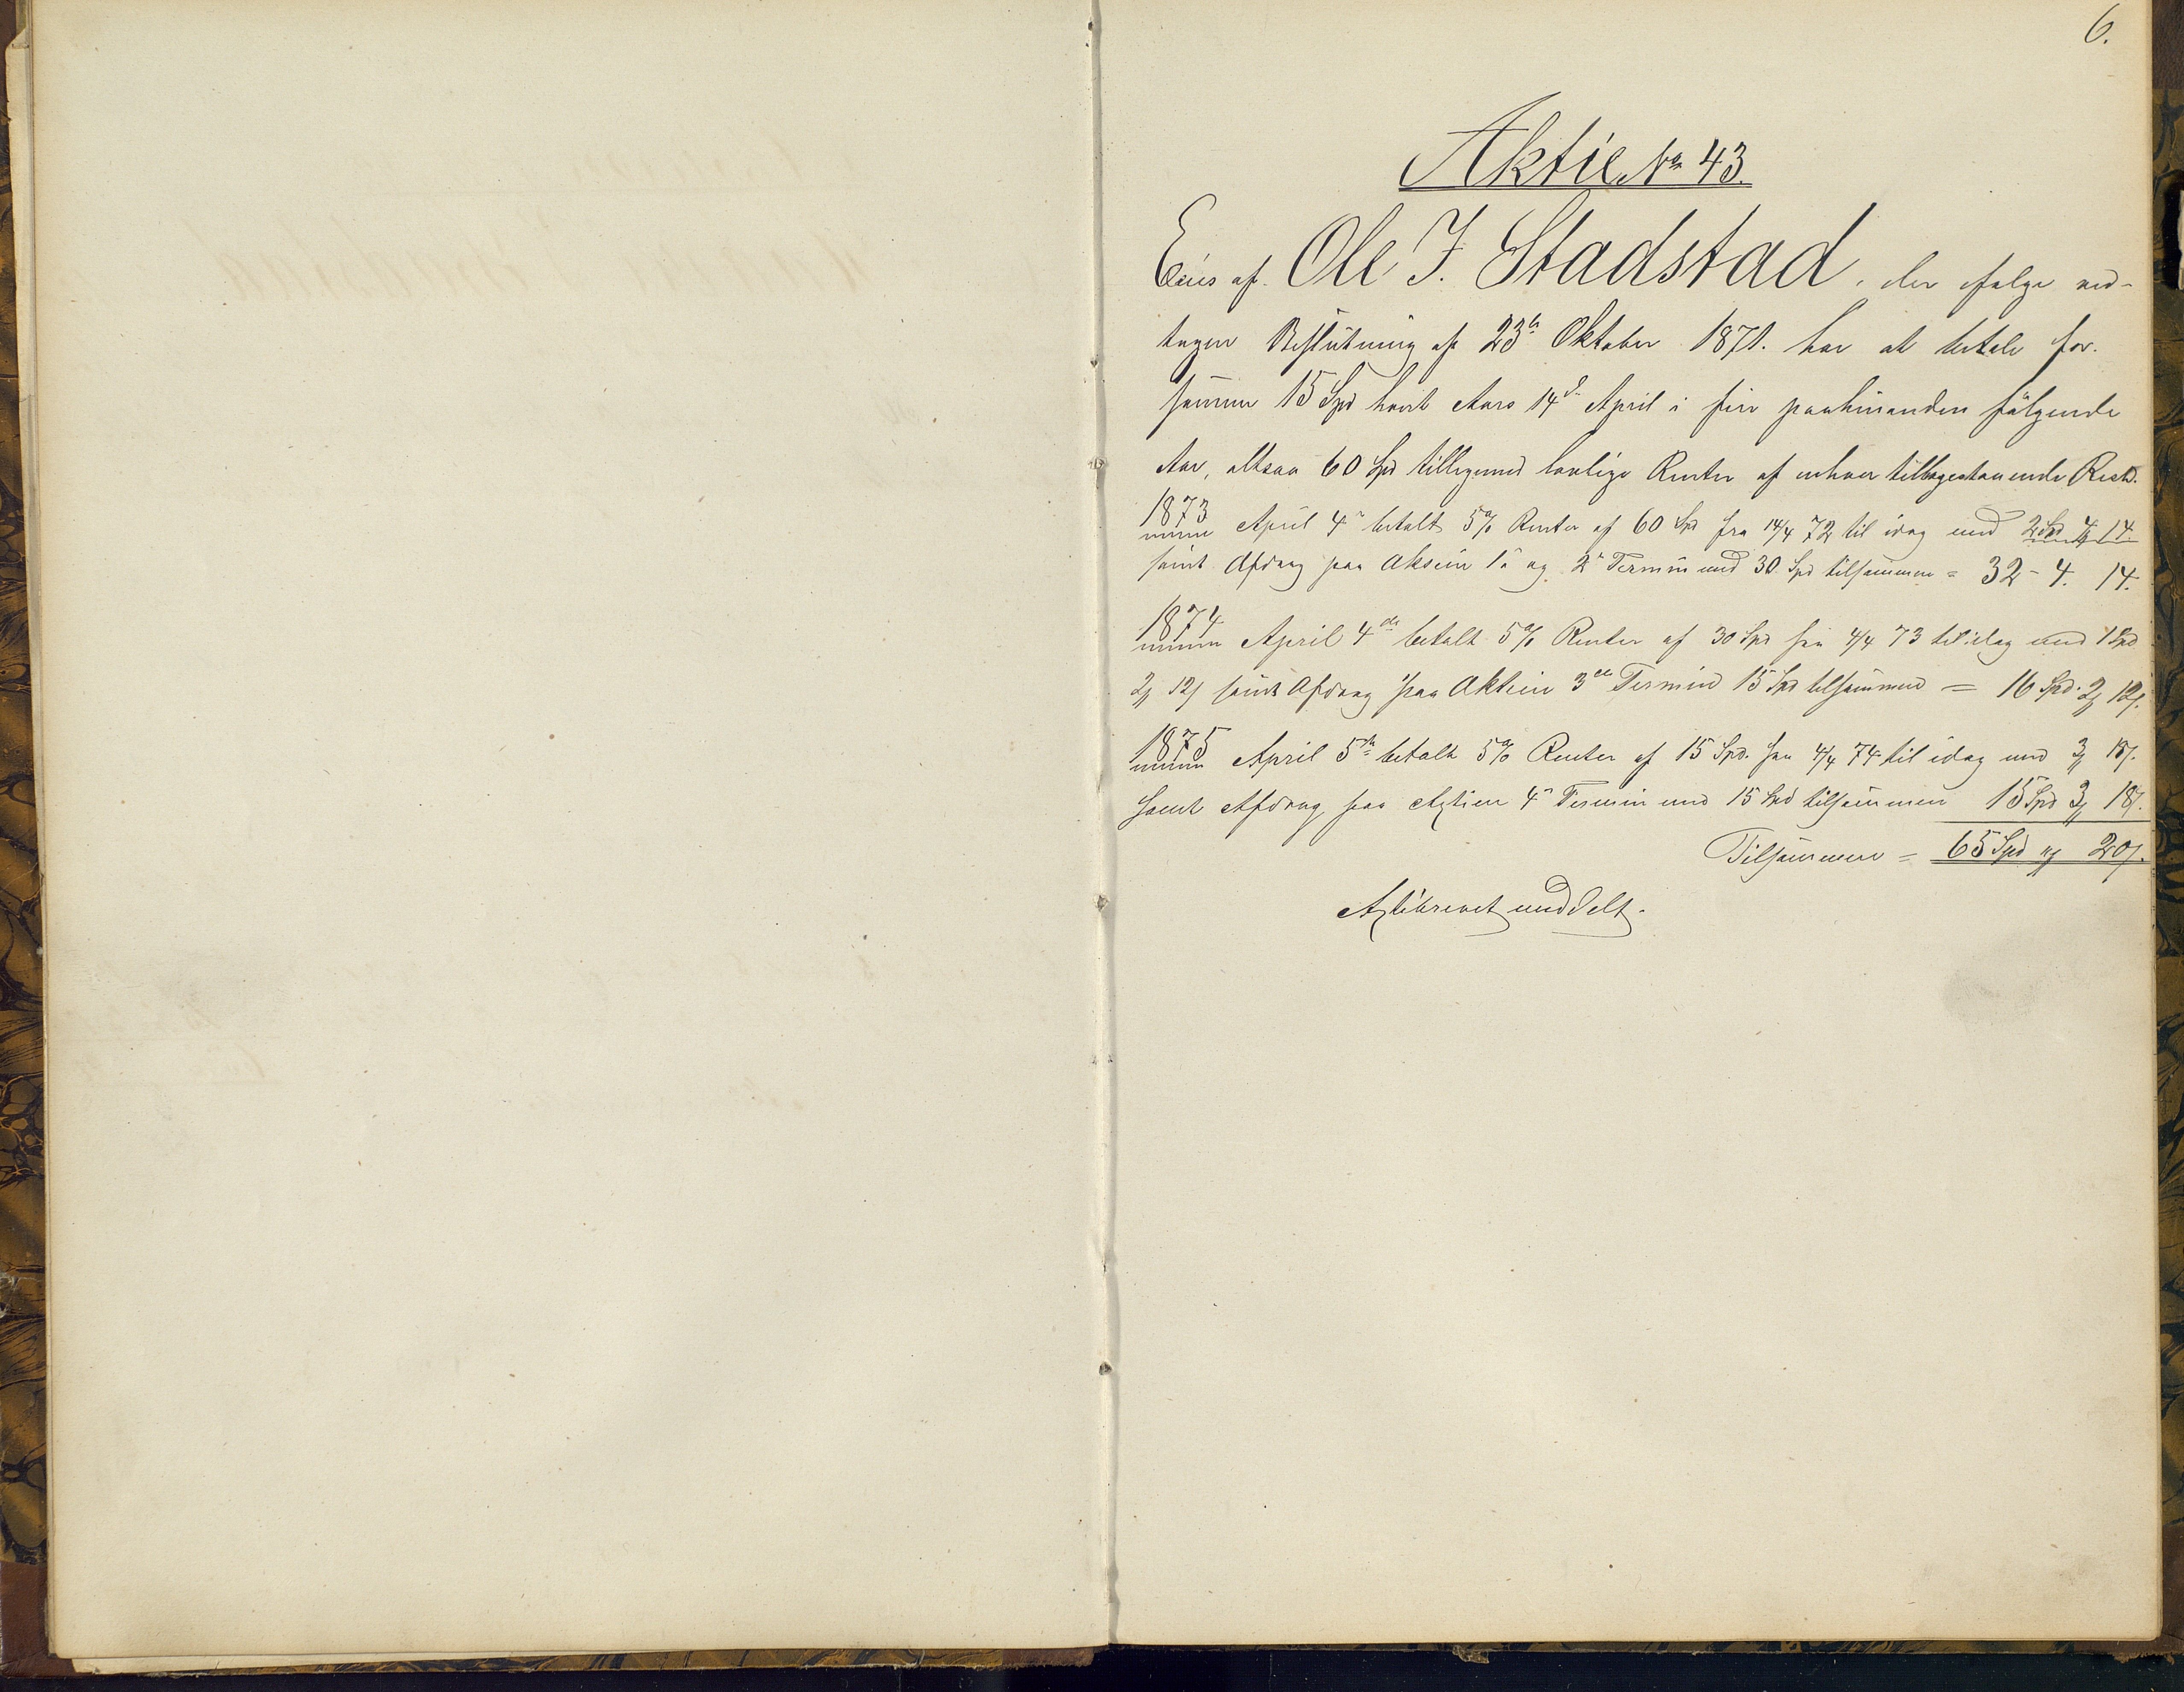 6.
Aktie No 43.
Eies af Ole J. Stadstad, der ifølge ved-
tagen Beslutning af 23de Oktober 1871. har at betale for
samme 15 Spd hvert Aars 14de April i fire paahinanden følgende
Aar, altsaa 60 Spd tilligemed lovlige Renter af enhver tilbagestaaende Rest.
1873 April 4de betalt 5% Renter af 60 Spd fra 14/4 72 til idag med 2 Spd 4 14
samt Afdrag paa Aksein 1te og 2de Termin med 30 Spd tilsammen = 32 - 4. 14.
1874 April 4de betalt 5% Renter af 30 Spd fra 4/4 73 til idag med 1 Spd
2 12 samt Afdrag paa Aktien 3die Termin 15 Spd tilsammen = 16 Spd. 2 12.
1875 April 5te betalt 5% Renter af 15 Spd. fra 4/4 74 til idag med 3 18.
samt Afdrag paa Aktien 4de Termin med 15 Spd tilsammen 15 Spd 3 18.
Tilsammen = 65 Spd 20.
Aktiebrevet meddelt.